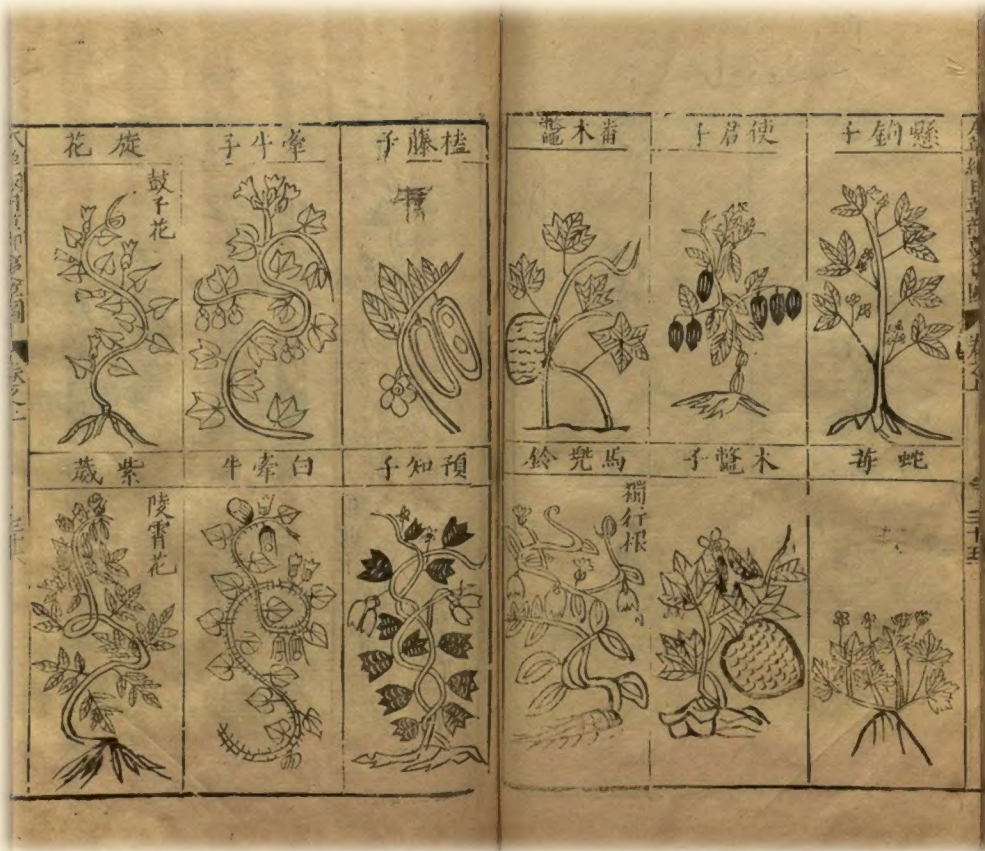 懸鉤子
使君子
番木鱉
蛇苺
木鱉子
馬兠鈴
獨行根
卷之上
三十五
榼藤子
牽牛子
旋花
鼓子花
預知子
白牽牛
紫葳
陵霄花